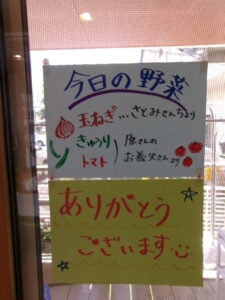 今日の野菜
玉ねぎ…さとみさんちより
きゅうり
トマト
原さんの
お義父さんより
ありがとう
ございます